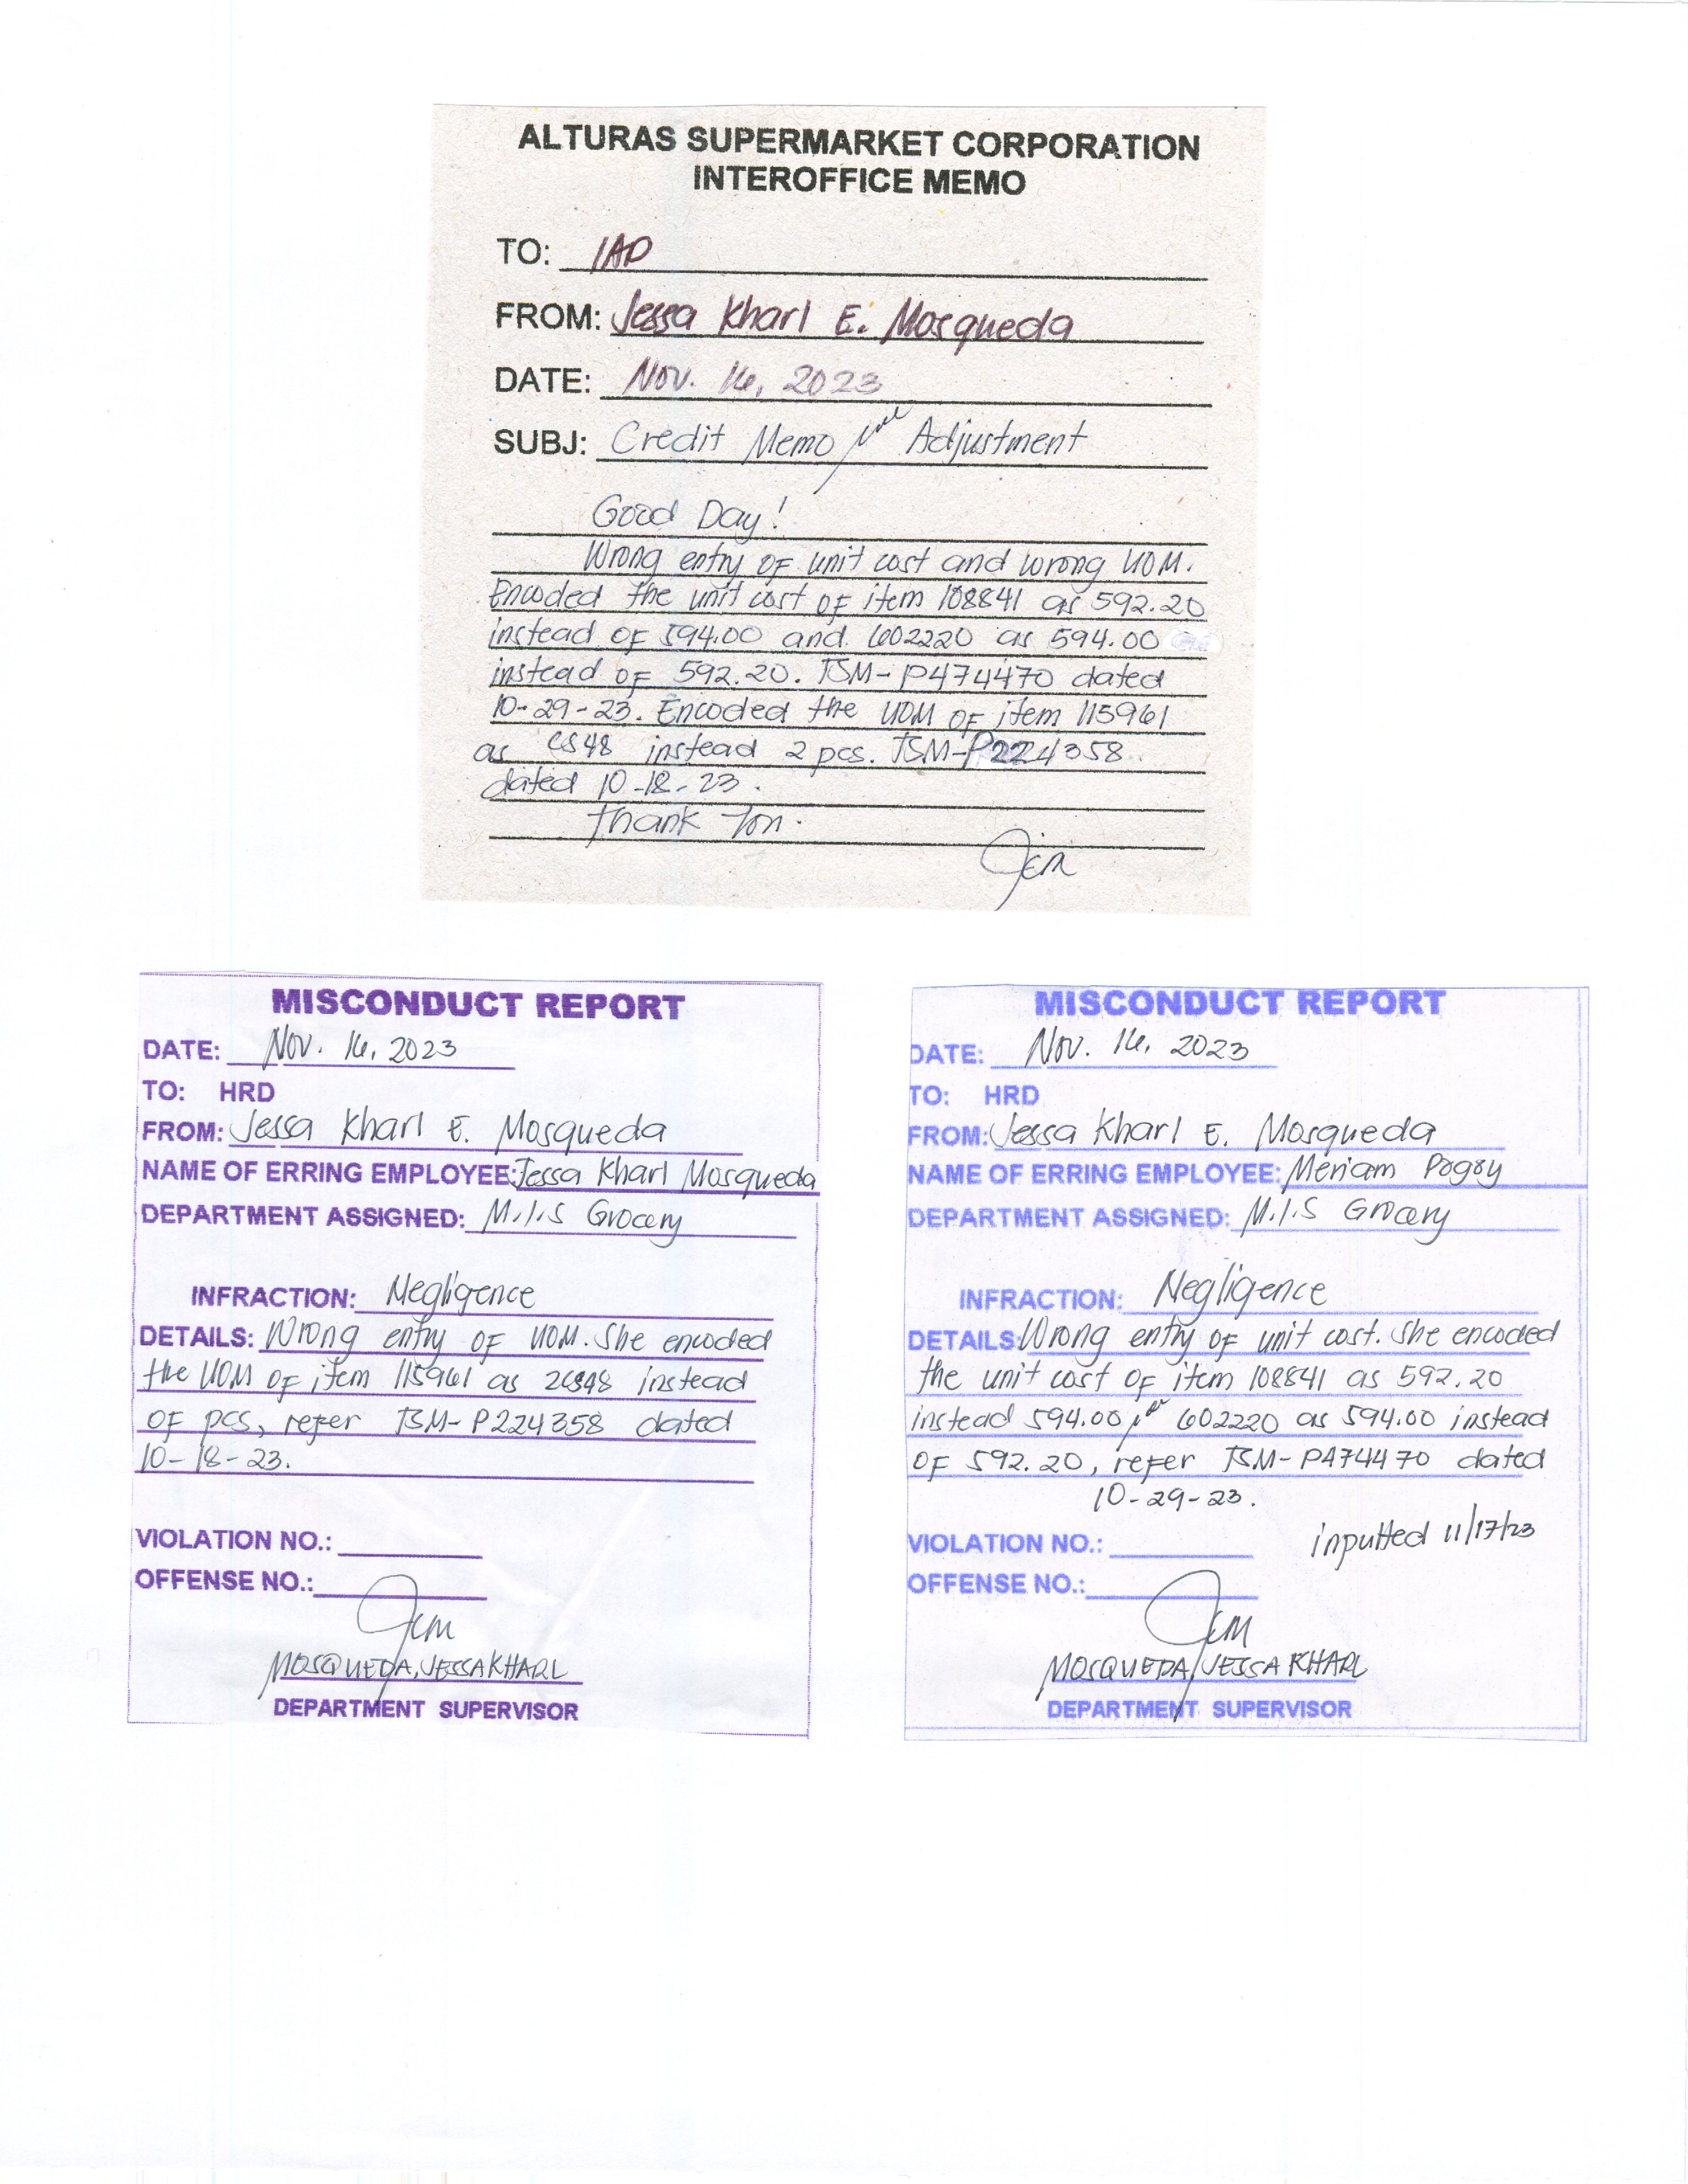 ALTURAS SUPERMARKET CORPORATION
INTEROFFICE MEMO
TO: IAD
FROM: Jessa Kharl E. Mosqueda
DATE: Nov. 16, 2023
SUBJ: Credit Memo Adjustment
Good Day!
Wrong entry of unit cost and wrong UOM.
Encoded the unit cost of item 108841 as 592.20
instead of 594.00 and 602220 as 594.00
instead of 592.20. TSM-P474470 dated
10-29-23. Encoded the UOM of item 115961
as cs48 instead 2 pcs. TSM-P224358
dated 10-18-23.
Thank You.
MISCONDUCT REPORT
DATE: Nov. 16, 2023
TO: HRD
FROM: Jessa Kharl E. Mosqueda
NAME OF ERRING EMPLOYEE: Jessa Kharl Mosqueda
DEPARTMENT ASSIGNED: M.I.S Grocery
INFRACTION: Negligence
DETAILS: Wrong entry of UOM. She encoded
the UOM of item 115961 as 2cs48 instead
of pcs, refer TSM-P224358 dated
10-18-23.
VIOLATION NO.:
OFFENSE NO.:
MOSQUEDA, JESSA KHARL
DEPARTMENT SUPERVISOR
MISCONDUCT REPORT
DATE: Nov. 16, 2023
TO: HRD
FROM: Jessa Kharl E. Mosqueda
NAME OF ERRING EMPLOYEE: Meriam
DEPARTMENT ASSIGNED: M.I.S Grocery
INFRACTION: Negligence
DETAILS: Wrong entry of unit cost. She encoded
the unit cost of item 108841 as 592.20
instead 594.00 602220 as 594.00 instead
of 592.20, refer TSM-P474470 dated
10-29-23.
inputted 11/17/23
VIOLATION NO.:
OFFENSE NO.:
MOSQUEDA, JESSA KHARL
DEPARTMENT SUPERVISOR